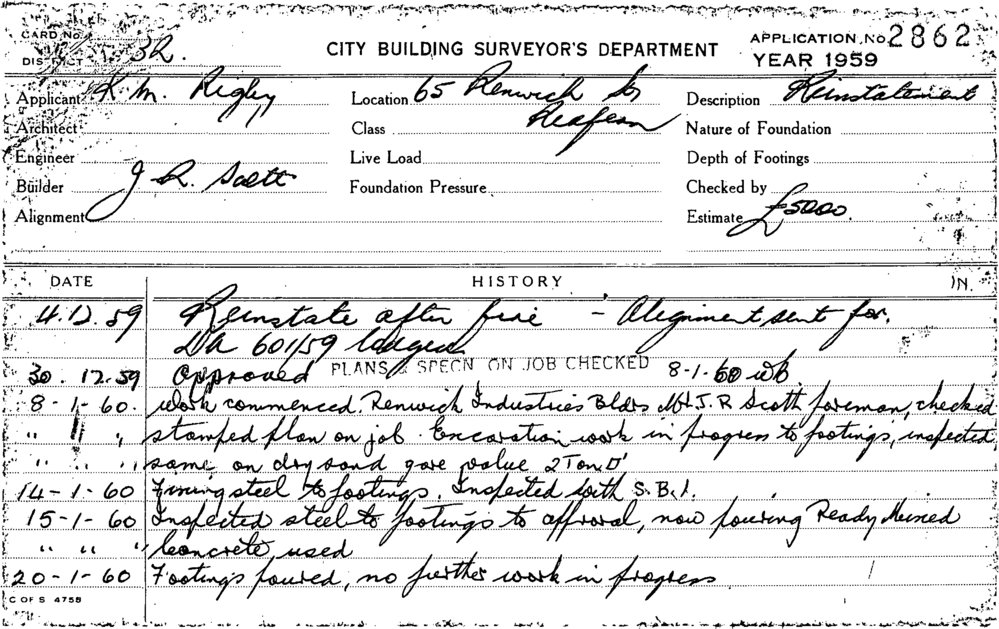 CARD No.
DISTRICT 32.
CITY BUILDING SURVEYOR'S DEPARTMENT
APPLICATION No 2862
YEAR 1959
Applicant K. M. Rigby
Location 65 Renwick St
Redfern
Description Reinstatement
Architect
Class
Nature of Foundation
Engineer
Live Load
Depth of Footings
Builder J R. Scott
Foundation Pressure
Checked by
Alignment
Estimate £5000.
DATE HISTORY IN.
4.12.59 Reinstate after fire - Alignment sent for.
DA 601/59 lodged
30.12.59 Approved PLANS & SPECN ON JOB CHECKED 8-1-60 WB
8-1-60. Work commenced. Renwick Industries Bldrs Mr J. R Scott foreman, checked
" " " stamped plan on job. Excavation work in progress to footings, inspected
" " " same on dry sand gave value 2 Ton □'
14-1-60 Fixing steel to footings. Inspected with S.B.I.
15-1-60 Inspected steel to footings to approval, now pouring Ready Meixed
" " " Concrete used
20-1-60 Footings poured, no further work in progress
C OF S 4758